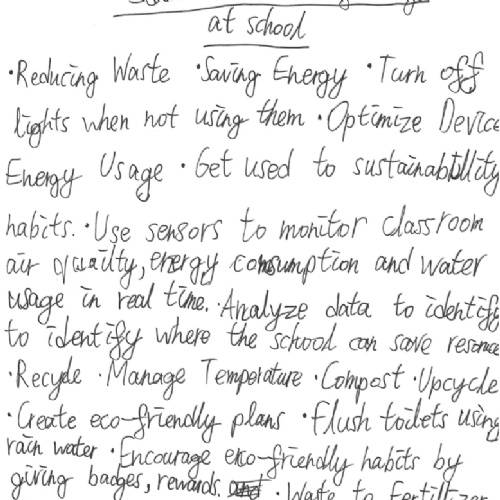 at school
·Reducing Waste ·Saving Energy ·Turn off
lights when not using them ·Optimize Device
Energy Usage ·Get used to sustainability
habits. ·Use sensors to monitor classroom
air quailty, energy consumption and water
usage in real time. ·Analyze data to identify
to identify where the school can save resource
·Recycle ·Manage Temperature ·Compost ·Upcycle
·Create eco-friendly plans ·Flush toilets using
rain water ·Encourage eco-friendly habits by
giving badges, rewards. ·Waste to Fertilizer